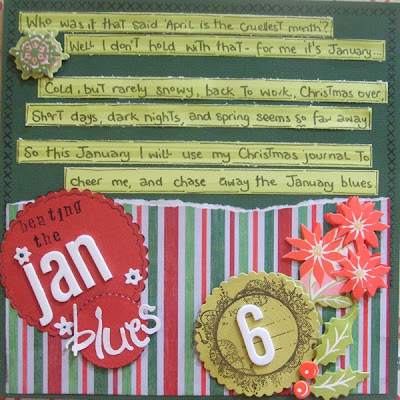 Who was it that said 'April is the cruellest month?
Well I don't hold with that - for me it's January...
Cold, but rarely snowy, back to work, Christmas over,
Short days, dark nights, and spring seems so far away
So this January I will use my Christmas journal to
cheer me, and chase away the January blues.
beating
the
jan
blues
6